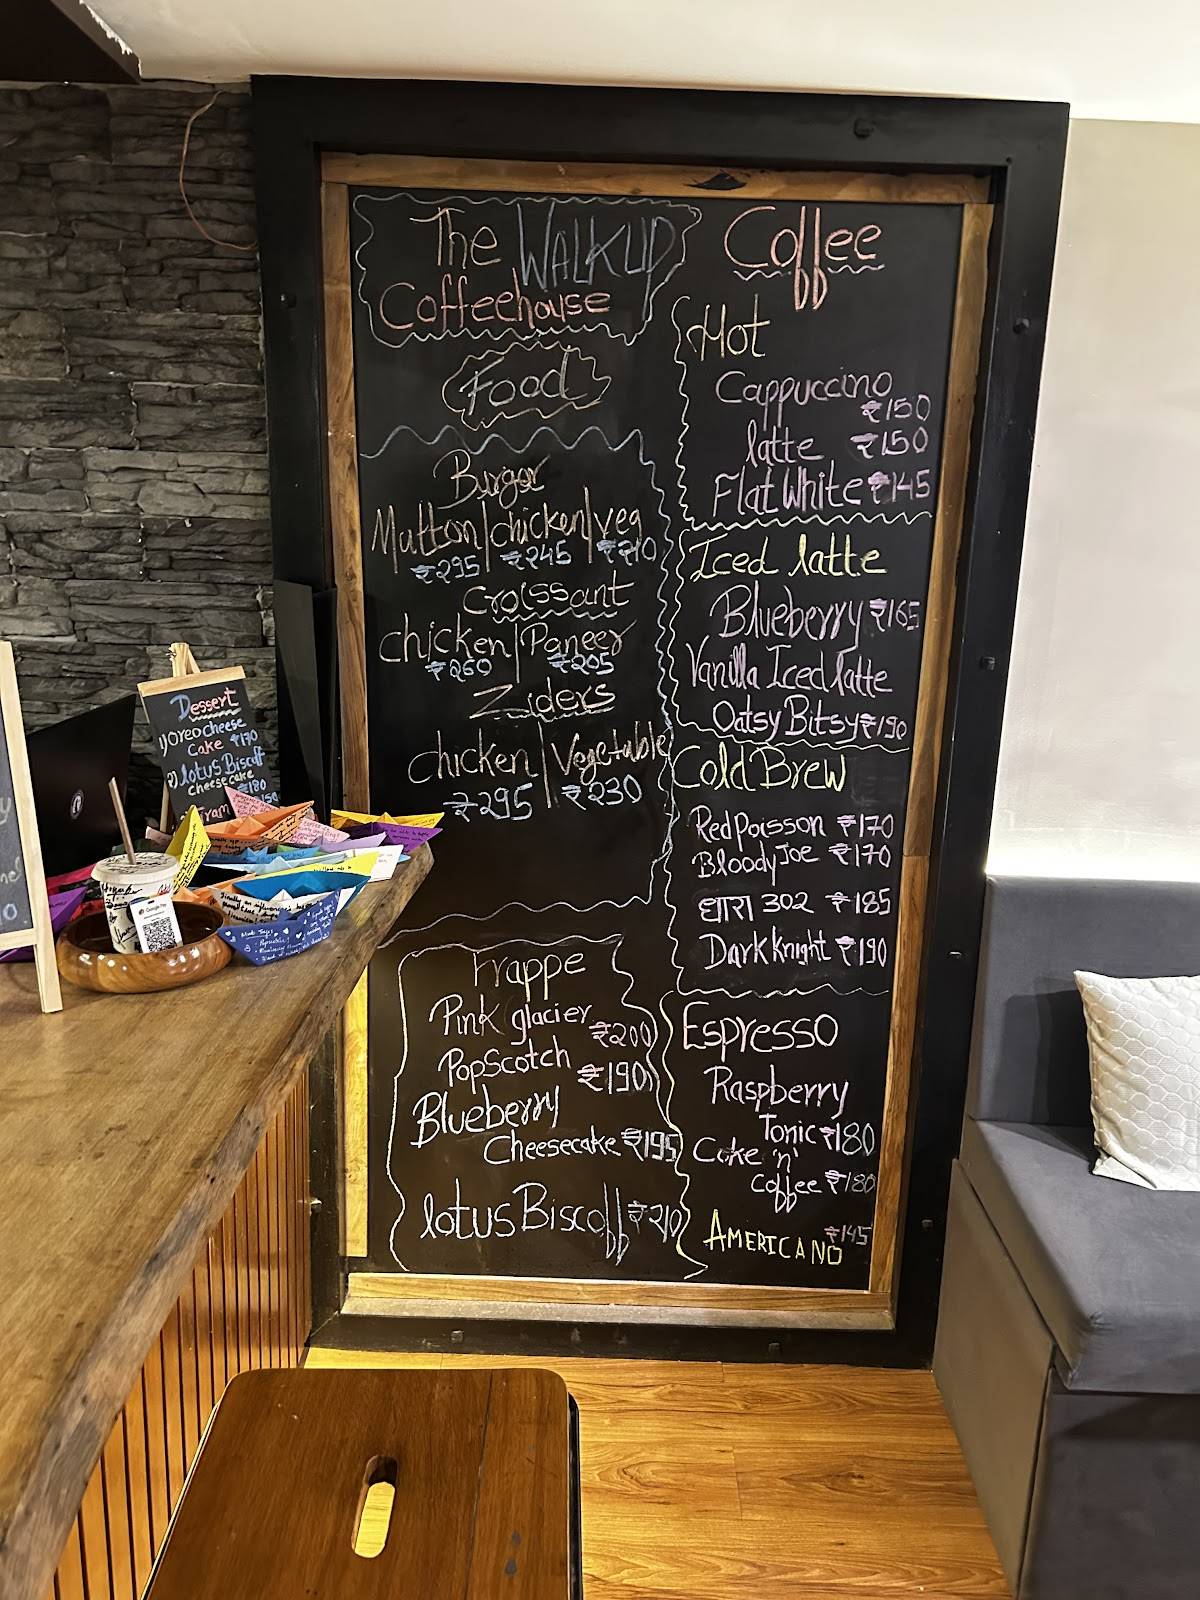 The WALKUP
Coffeehouse
Food
Burger
Mutton | chicken | veg
₹295 ₹245 ₹210
Croissant
chicken | Paneer
₹260 ₹205
Ziders
chicken | Vegetable
₹295 ₹230
Frappe
Pink glacier ₹200
PopScotch ₹190
Blueberry
Cheesecake ₹195
lotus Biscoff ₹210
Coffee
Hot
Cappuccino
₹150
latte ₹150
Flat White ₹145
Iced latte
Blueberry ₹165
Vanilla Iced latte
Oatsy Bitsy ₹190
Cold Brew
Red Poisson ₹170
Bloody Joe ₹170
धारा 302 ₹185
Dark Knight ₹190
Espresso
Raspberry
Tonic ₹180
Coke 'n'
Coffee ₹180
AMERICANO ₹145
Dessert
1) Oreo cheese
Cake ₹170
2) lotus Biscoff
cheese cake
₹180